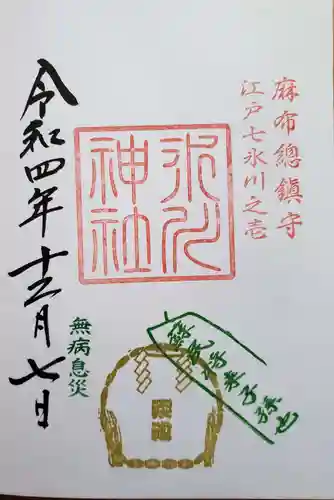 麻布總鎮守
江戸七氷川之壱
氷川神社
令和四年十二月七日
無病息災
蘇民将来子孫也